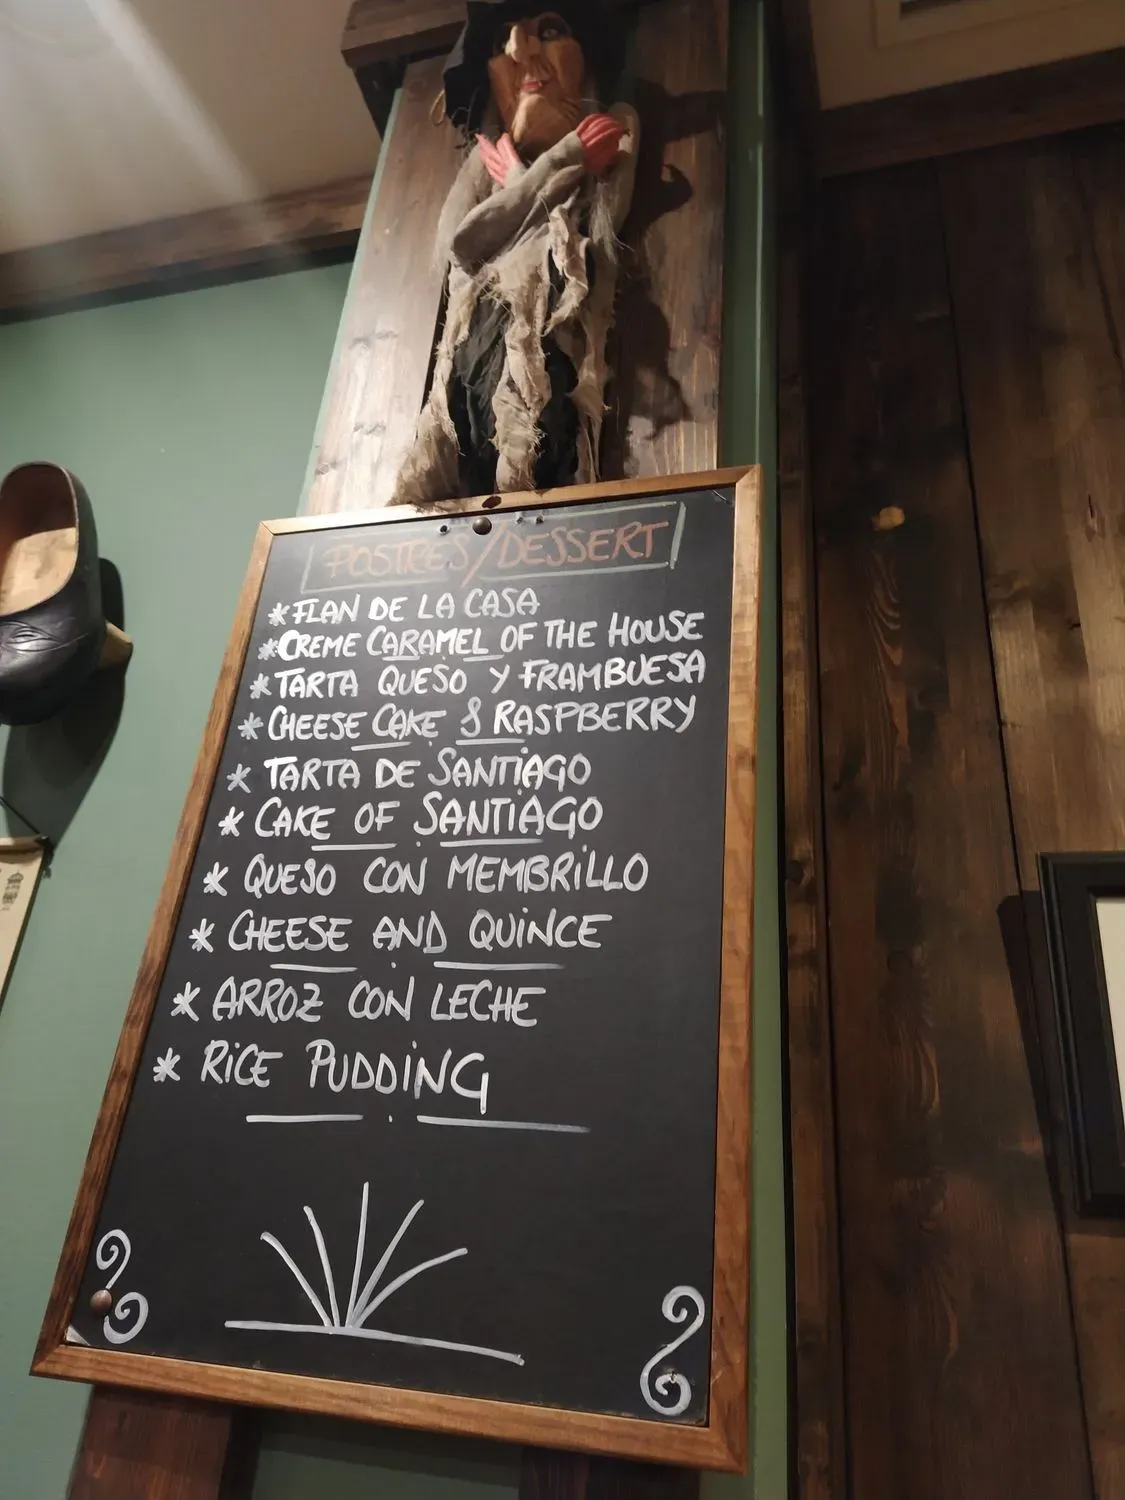 POSTRES/DESSERT
* FLAN DE LA CASA
* CREME CARAMEL OF THE HOUSE
* TARTA QUESO Y FRAMBUESA
* CHEESE CAKE & RASPBERRY
* TARTA DE SANTIAGO
* CAKE OF SANTIAGO
* QUESO CON MEMBRILLO
* CHEESE AND QUINCE
* ARROZ CON LECHE
* RICE PUDDING